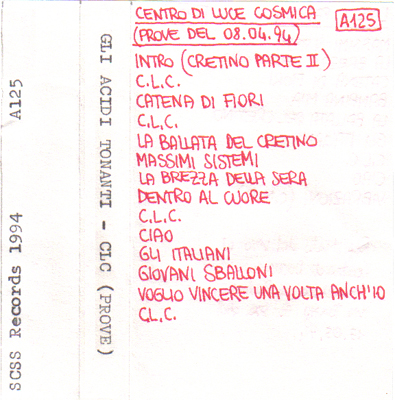 CENTRO DI LUCE COSMICA
(PROVE DEL 08.04.94)
A125
INTRO (CRETINO PARTE II)
C.L.C.
CATENA DI FIORI
C.L.C.
LA BALLATA DEL CRETINO
MASSIMI SISTEMI
LA BREZZA DELLA SERA
DENTRO AL CUORE
C.L.C.
CIAO
GLI ITALIANI
GIOVANI SBALLONI
VOGLIO VINCERE UNA VOLTA ANCH'IO
C.L.C.
GLI ACIDI TONANTI - CLC (PROVE)
SCSS Records 1994 A125